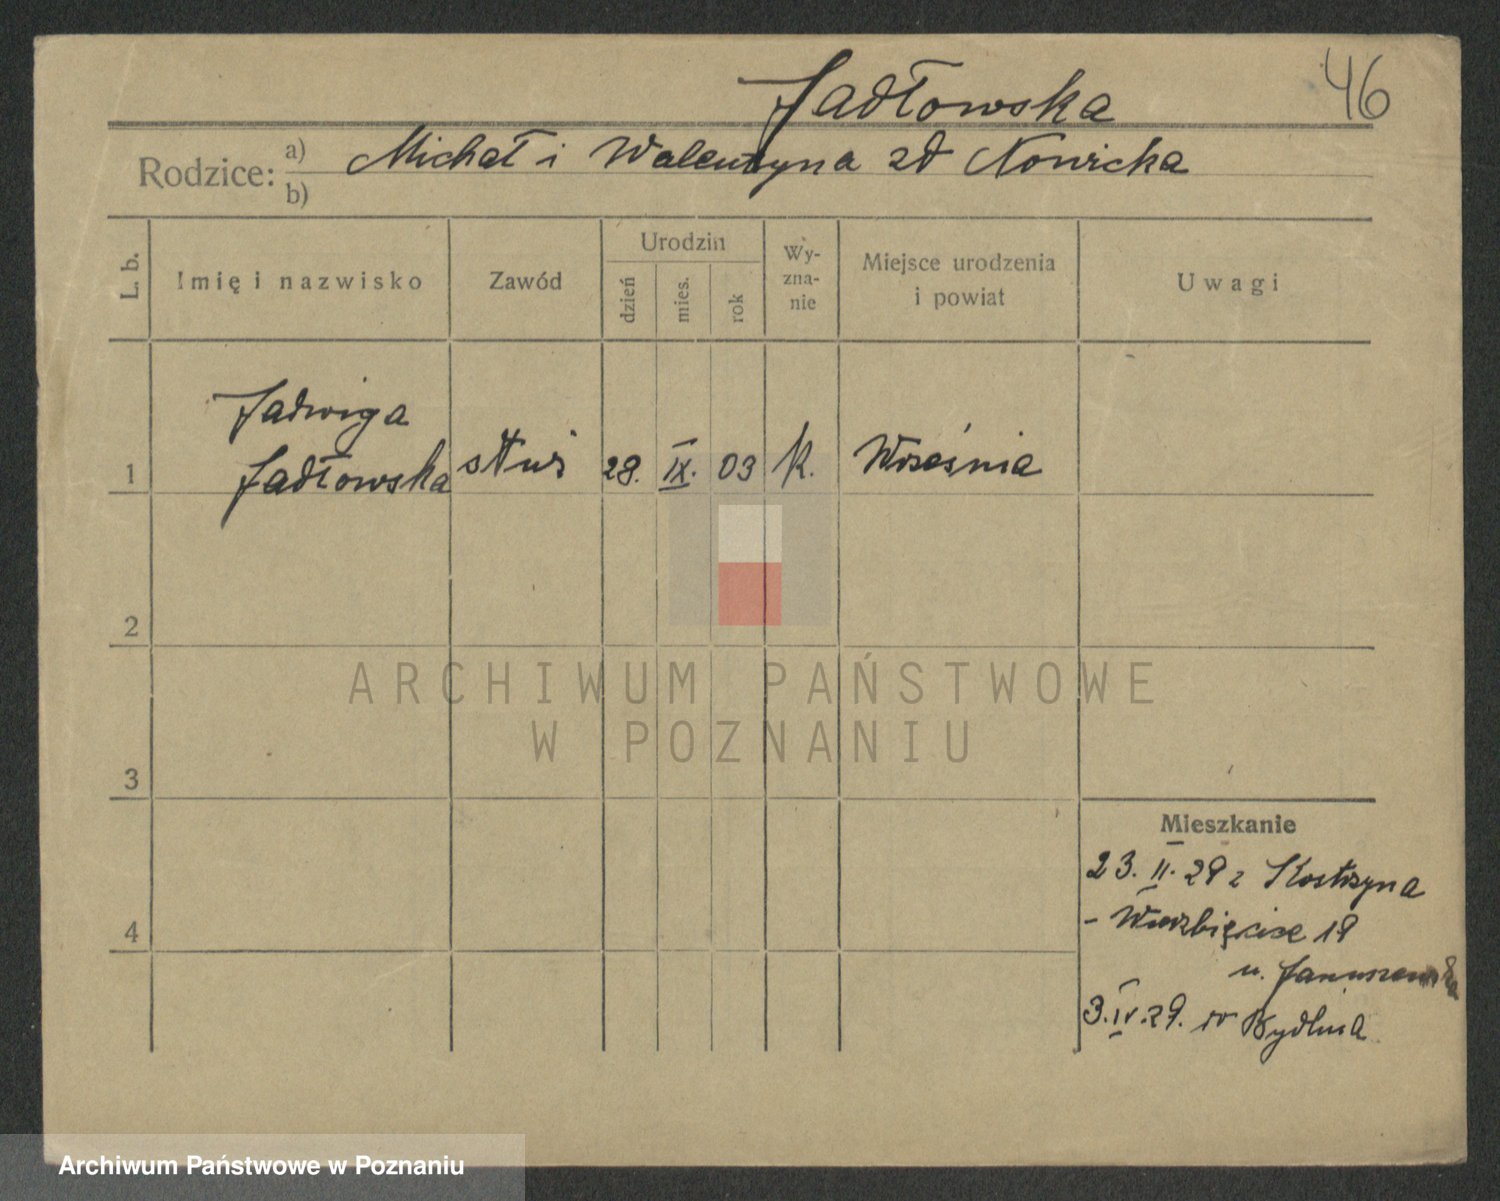 Jadłowska
46
Rodzice: a) Michał i Walentyna zd Nowicka
b)
L. b.
Imię i nazwisko
Zawód
Urodzin
dzień
mies.
rok
Wy-
zna-
nie
Miejsce urodzenia
i powiat
Uwagi
Jadwiga
1 Jadłowska służ 28. IX. 03 k. Września
2
3
4
ARCHIWUM PAŃSTWOWE
W POZNANIU
Mieszkanie
23. II. 29 z Kostrzyna
- Wierzbięcice 19
u. Januszewska
3. IV. 29. w
Archiwum Państwowe w Poznaniu